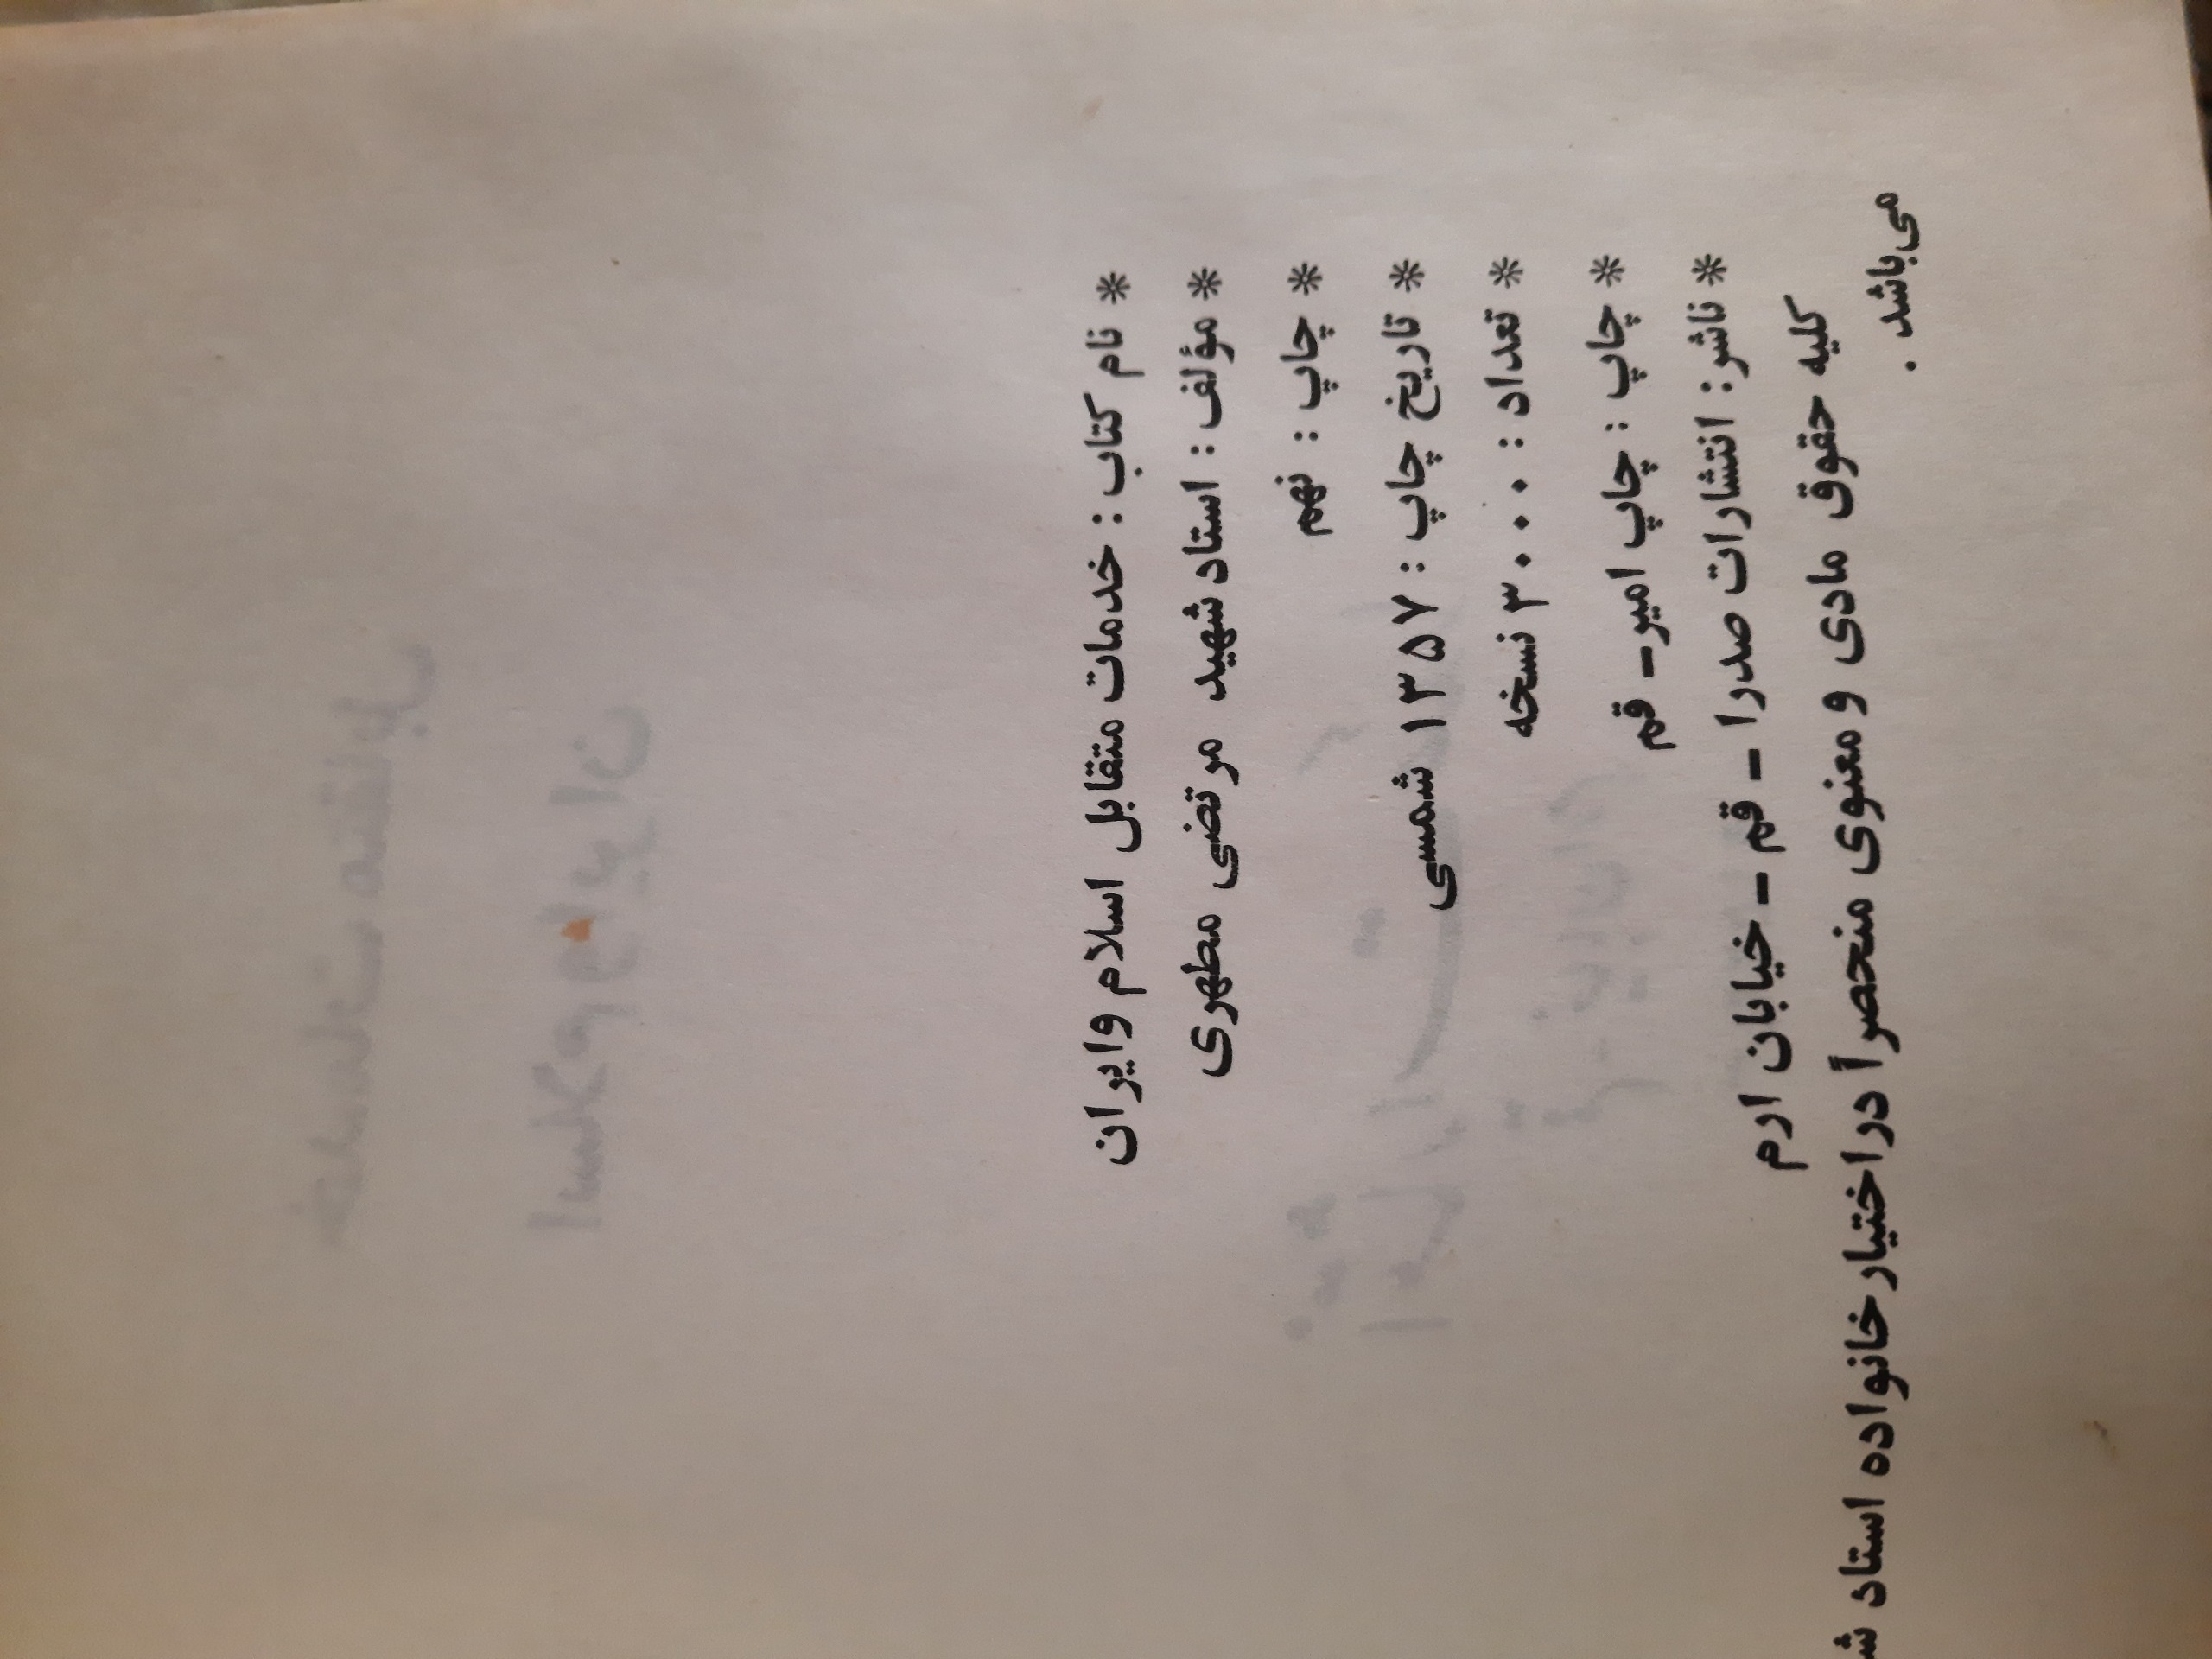 * نام کتاب : خدمات متقابل اسلام و ایران
* مؤلف : استاد شهید مرتضی مطهری
* چاپ : نهم
* تاریخ چاپ : ۱۳۵۷ شمسی
* تعداد : ۳۰۰۰ نسخه
* چاپ : چاپ امیر - قم
* ناشر : انتشارات صدرا - قم - خیابان ارم
کلیه حقوق مادی و معنوی منحصراً در اختیار خانواده استاد
می‌باشد .